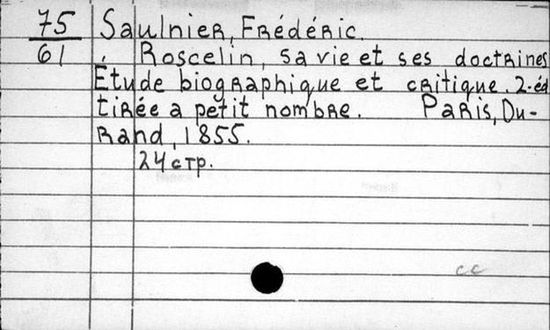 75 Saulnier, Frédéric.
61 Roscelin, sa vie et ses doctrines
Étude biographique et critique. 2-éd
tirée a petit nombre. Paris, Du-
rand, 1855.
24 стр.
cc